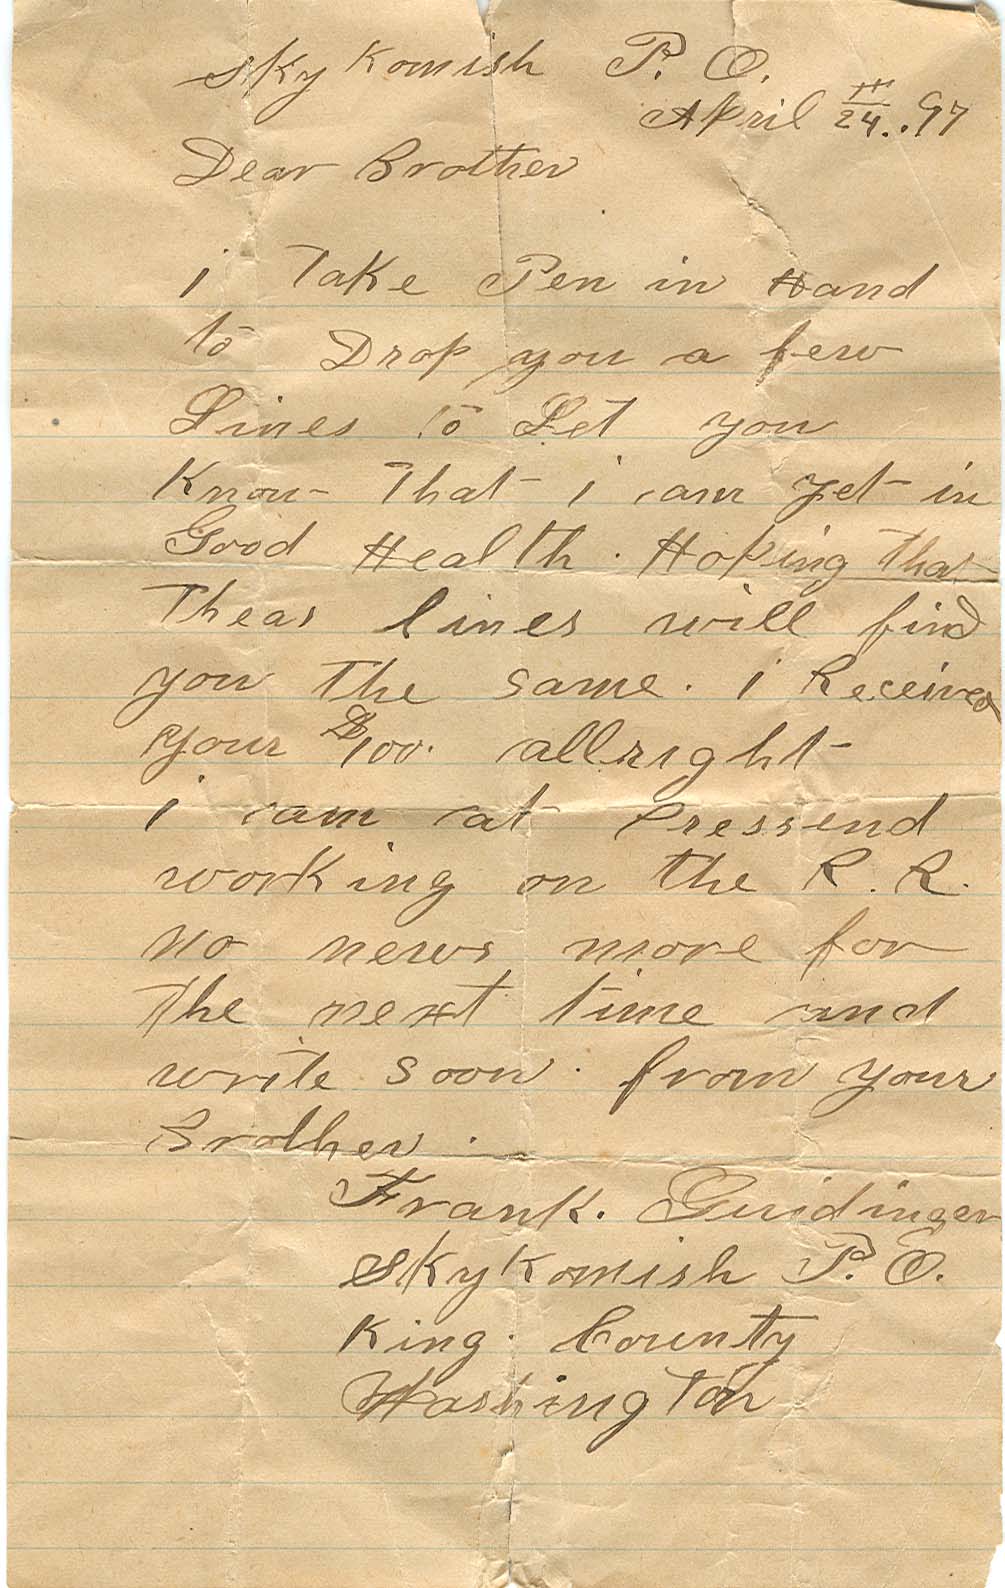 Skykomish P. O.
April 24th.. 97
Dear Brother
i Take Pen in Hand
to Drop you a few
Lines to Let you
Know That i am yet in
Good Health. Hoping that
Theas lines will find
you The same. i Received
your $100. allright
i am at Pressend
working on the R. R.
no news more for
The next time and
write soon. from your
Brother.
Frank. Guidinger
Skykomish P. O.
King. County
Washington